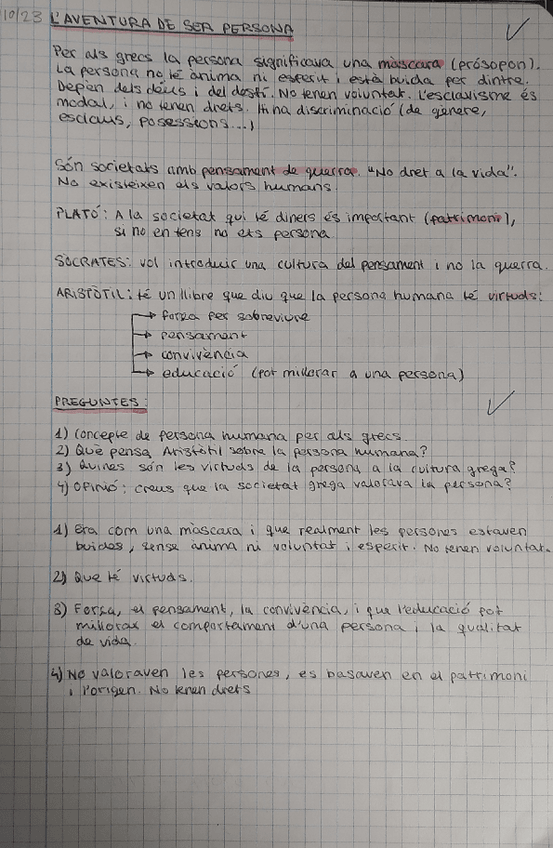 10/23 L'AVENTURA DE SER PERSONA
Per als grecs la persona significava una màscara (prósopon).
La persona no té ànima ni esperit i està buida per dintre.
Depèn dels déus i del destí. No tenen voluntat. L'esclavisme és
modal, i no tenen drets. Hi ha discriminació (de gènere,
esclaus, posessions...)
Són societats amb pensament de guerra. "No dret a la vida".
No existeixen els valors humans.
PLATÓ: A la societat qui té diners és important (patrimoni),
si no en tens no ets persona
SÒCRATES: vol introduir una cultura del pensament i no la guerra.
ARISTÒTIL: té un llibre que diu que la persona humana té virtuds:
→ força per sobreviure
→ pensament
→ convivència
→ educació (pot millorar a una persona)
PREGUNTES:
1) Concepte de persona humana per als grecs.
2) Què pensa Aristòtil sobre la persona humana?
3) Quines són les virtuds de la persona a la cultura grega?
4) Opinió: creus que la societat grega valorava la persona?
1) Era com una màscara i que realment les persones estaven
buides, sense ànima ni voluntat i esperit. No tenen voluntat.
2) Que té virtuds.
3) Força, el pensament, la convivència, i que l'educació pot
millorar el comportament d'una persona i la qualitat
de vida.
4) No valoraven les persones, es basaven en el patrimoni
i l'origen. No tenen drets